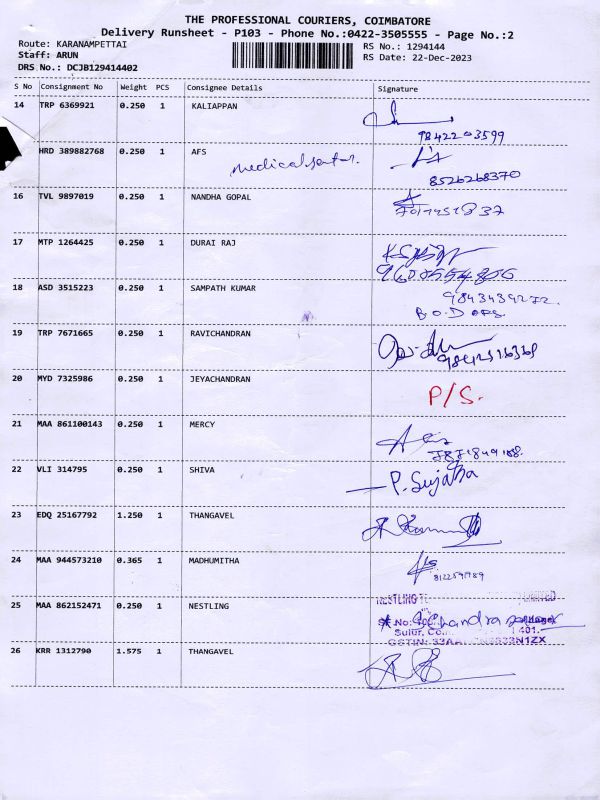 THE PROFESSIONAL COURIERS, COIMBATORE
Delivery Runsheet - P103 - Phone No.:0422-3505555 - Page No.:2
Route: KARANAMPETTAI
Staff: ARUN
DRS No.: DCJB129414402
RS No.: 1294144
RS Date: 22-Dec-2023
S No Consignment No Weight PCS Consignee Details Signature
14 TRP 6369921 0.250 1 KALIAPPAN
9842203599
HRD 389882768 0.250 1 AFS
8526268370
16 TVL 9897019 0.250 1 NANDHA GOPAL
17 MTP 1264425 0.250 1 DURAI RAJ
18 ASD 3515223 0.250 1 SAMPATH KUMAR
19 TRP 7671665 0.250 1 RAVICHANDRAN
20 MYD 7325986 0.250 1 JEYACHANDRAN
P/S.
21 MAA 861100143 0.250 1 MERCY
22 VLI 314795 0.250 1 SHIVA
P. Sujatha
23 EDQ 25167792 1.250 1 THANGAVEL
24 MAA 944573210 0.365 1 MADHUMITHA
25 MAA 862152471 0.250 1 NESTLING
NESTLING
Chandra
Sulur,
GSTIN:
26 KRR 1312790 1.575 1 THANGAVEL